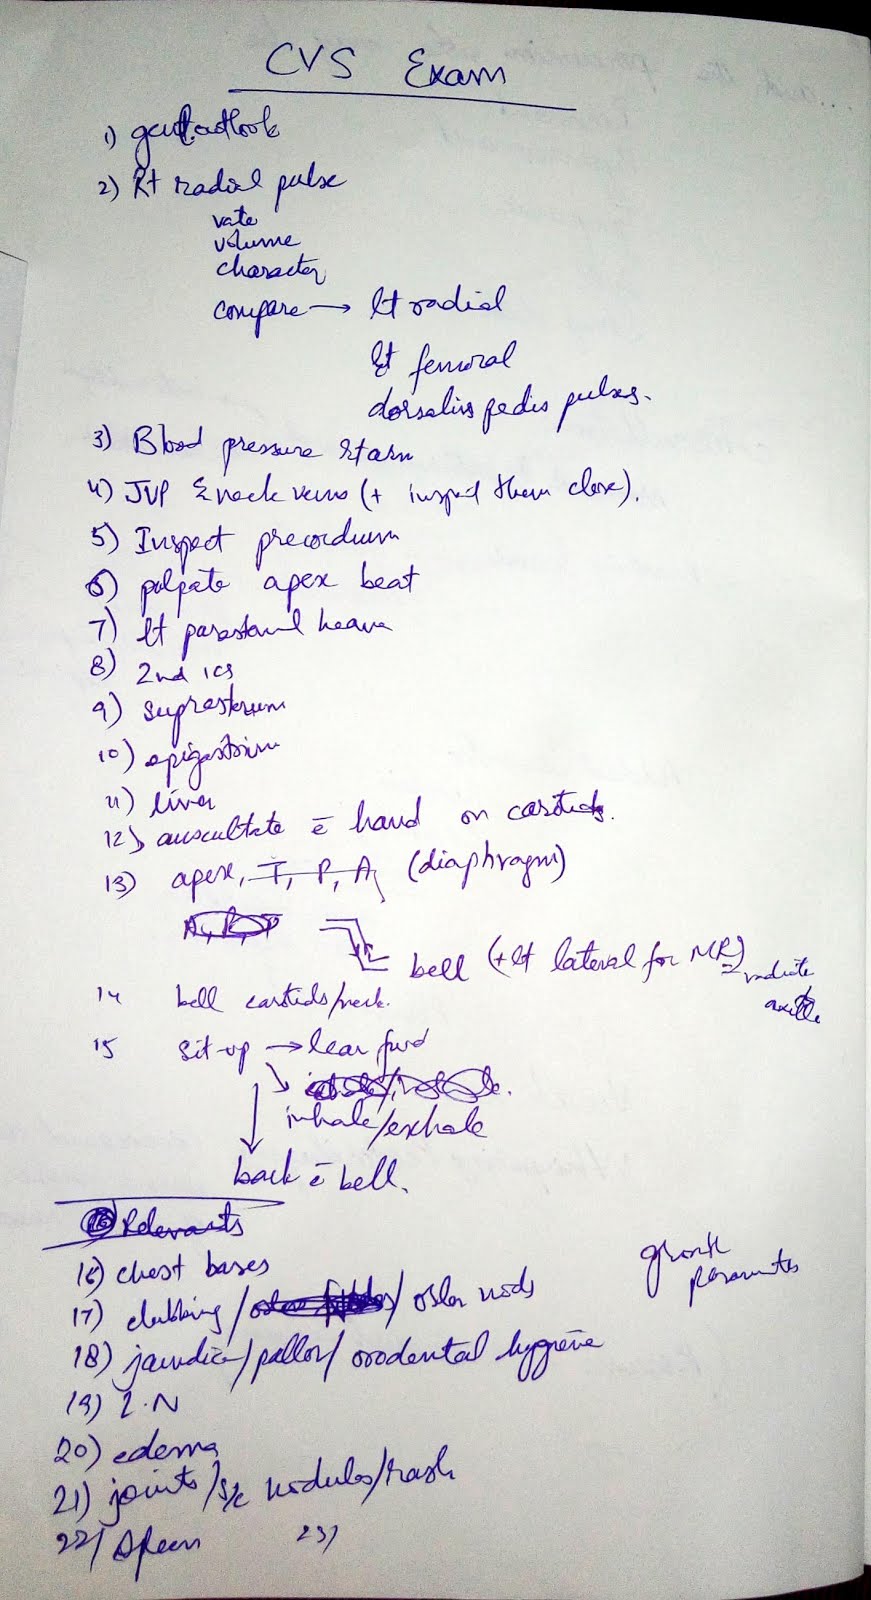 CVS Exam
1) genl. outlook
2) Rt radial pulse
rate
volume
character
compare → lt radial
lt femoral
dorsalis pedis pulses.
3) Blood pressure
4) JVP & neck veins (+ inspect them close).
5) Inspect precordium
6) palpate apex beat
7) lt parasternal heave
8) 2nd ICS
9) suprasternum
10) epigastrium
11) liver
12) auscultate c̄ hand on carotids.
13) apex, T, P, A, (diaphragm)
bell (+ lt lateral for MR) radiate
axilla
14 bell carotids/neck.
15 sit-up → lean fwd
inhale/exhale
back c̄ bell.
Relevants
16) chest bases
growth
parameters
17) clubbing / osler nods
18) jaundice/pallor/orodental hygiene
19) L.N
20) edema
21) joints/s/c nodules/rash
22) spleen 23)